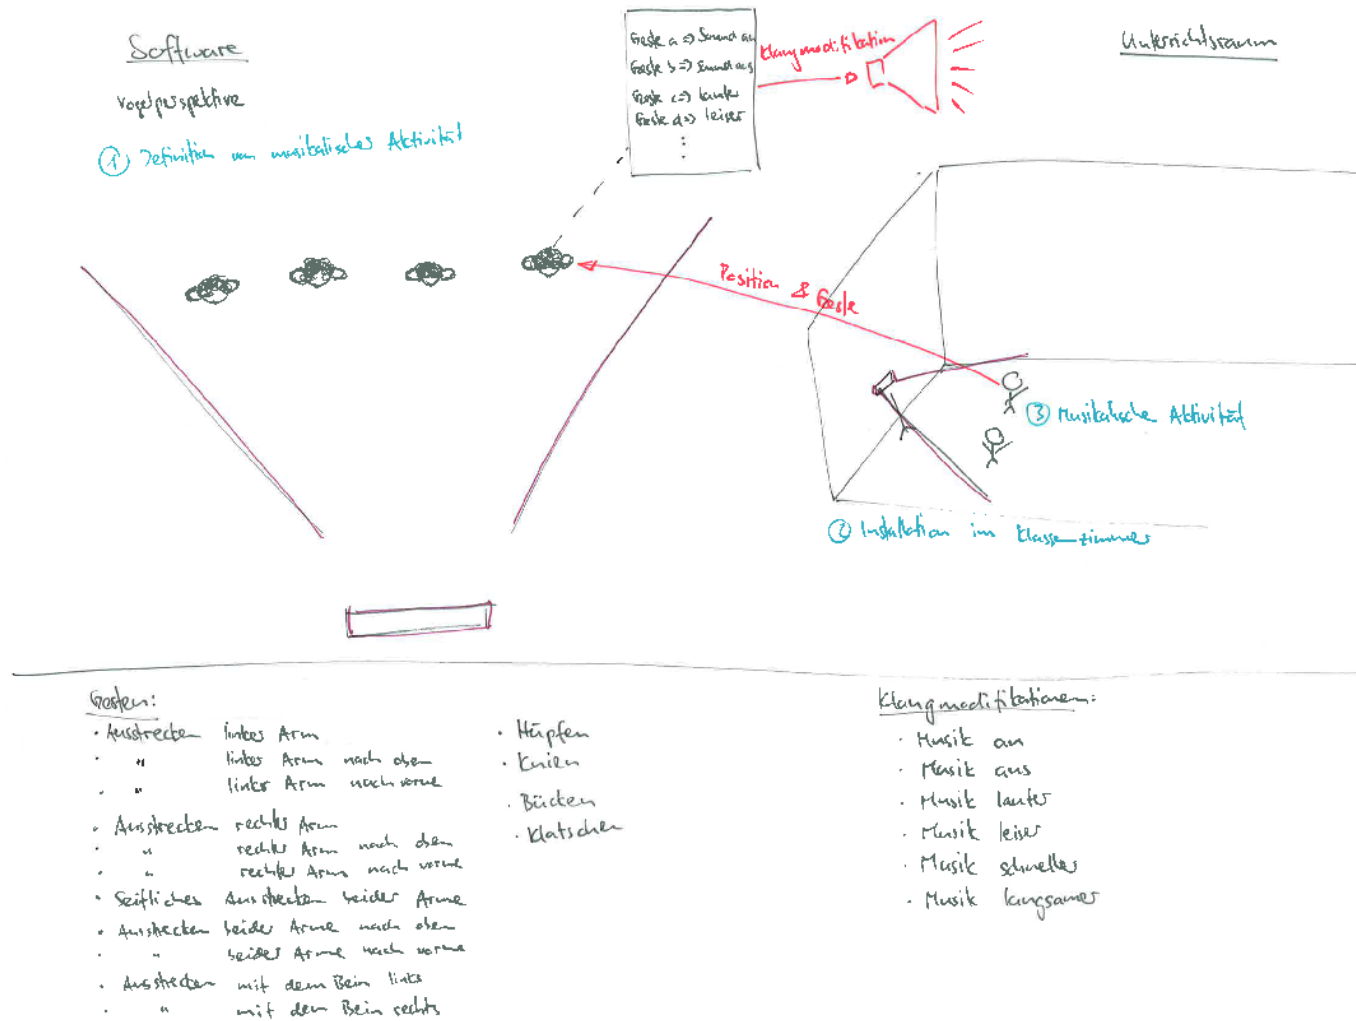 Software
Vogelperspektive
① Definition von musikalischer Aktivität
Geste a => Sound an
Geste b => Sound aus
Geste c => lauter
Geste d => leiser
⋮
Klangmodifikation
Unterrichtsraum
Position & Geste
③ Musikalische Aktivität
② Installation im Klassenzimmer
Gesten:
• Ausstrecken linker Arm
• " linker Arm nach oben
• " linker Arm nach vorne
• Ausstrecken rechter Arm
• " rechter Arm nach oben
• " rechter Arm nach vorne
• Seitliches Ausstrecken beider Arme
• Ausstrecken beider Arme nach oben
• " beider Arme nach vorne
• Ausstrecken mit dem Bein links
• " mit dem Bein rechts
• Hüpfen
• Knien
• Bücken
• Klatschen
Klangmodifikationen:
• Musik an
• Musik aus
• Musik lauter
• Musik leiser
• Musik schneller
• Musik langsamer